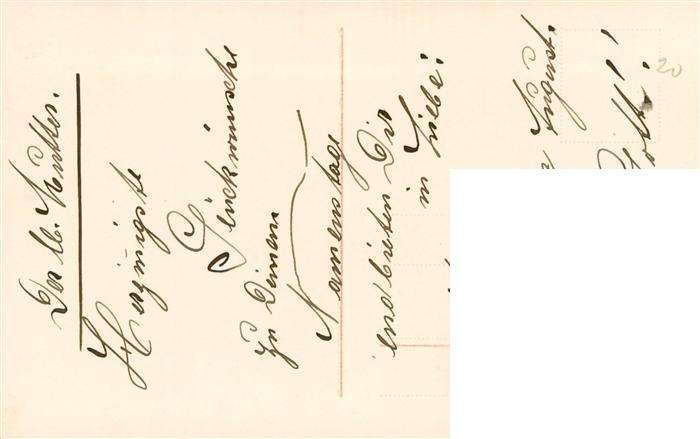 Der lb. Mutter.
Herzinnigste
Glückwünsche
zu Deinem
Namenstage
endbieten Dir
in Liebe:
August.
20